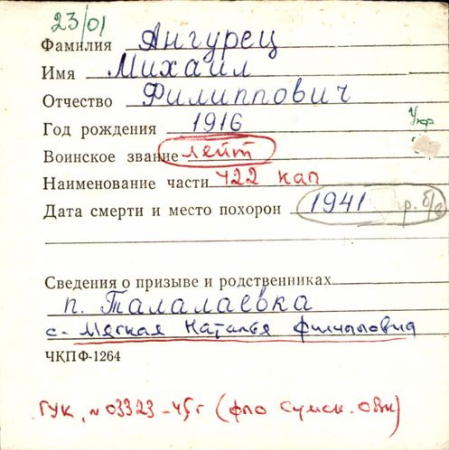 23/01
Фамилия Ангурец
Имя Михаил
Отчество Филиппович
Год рождения 1916
Укр
Воинское звание лейт
Наименование части 422 кап
Дата смерти и место похорон 1941
Сведения о призыве и родственниках
п. Талалаевка
с- Мягкая Наталья
ЧКПФ-1264
ГУК, №03323-45г (фло Сумск. обл)